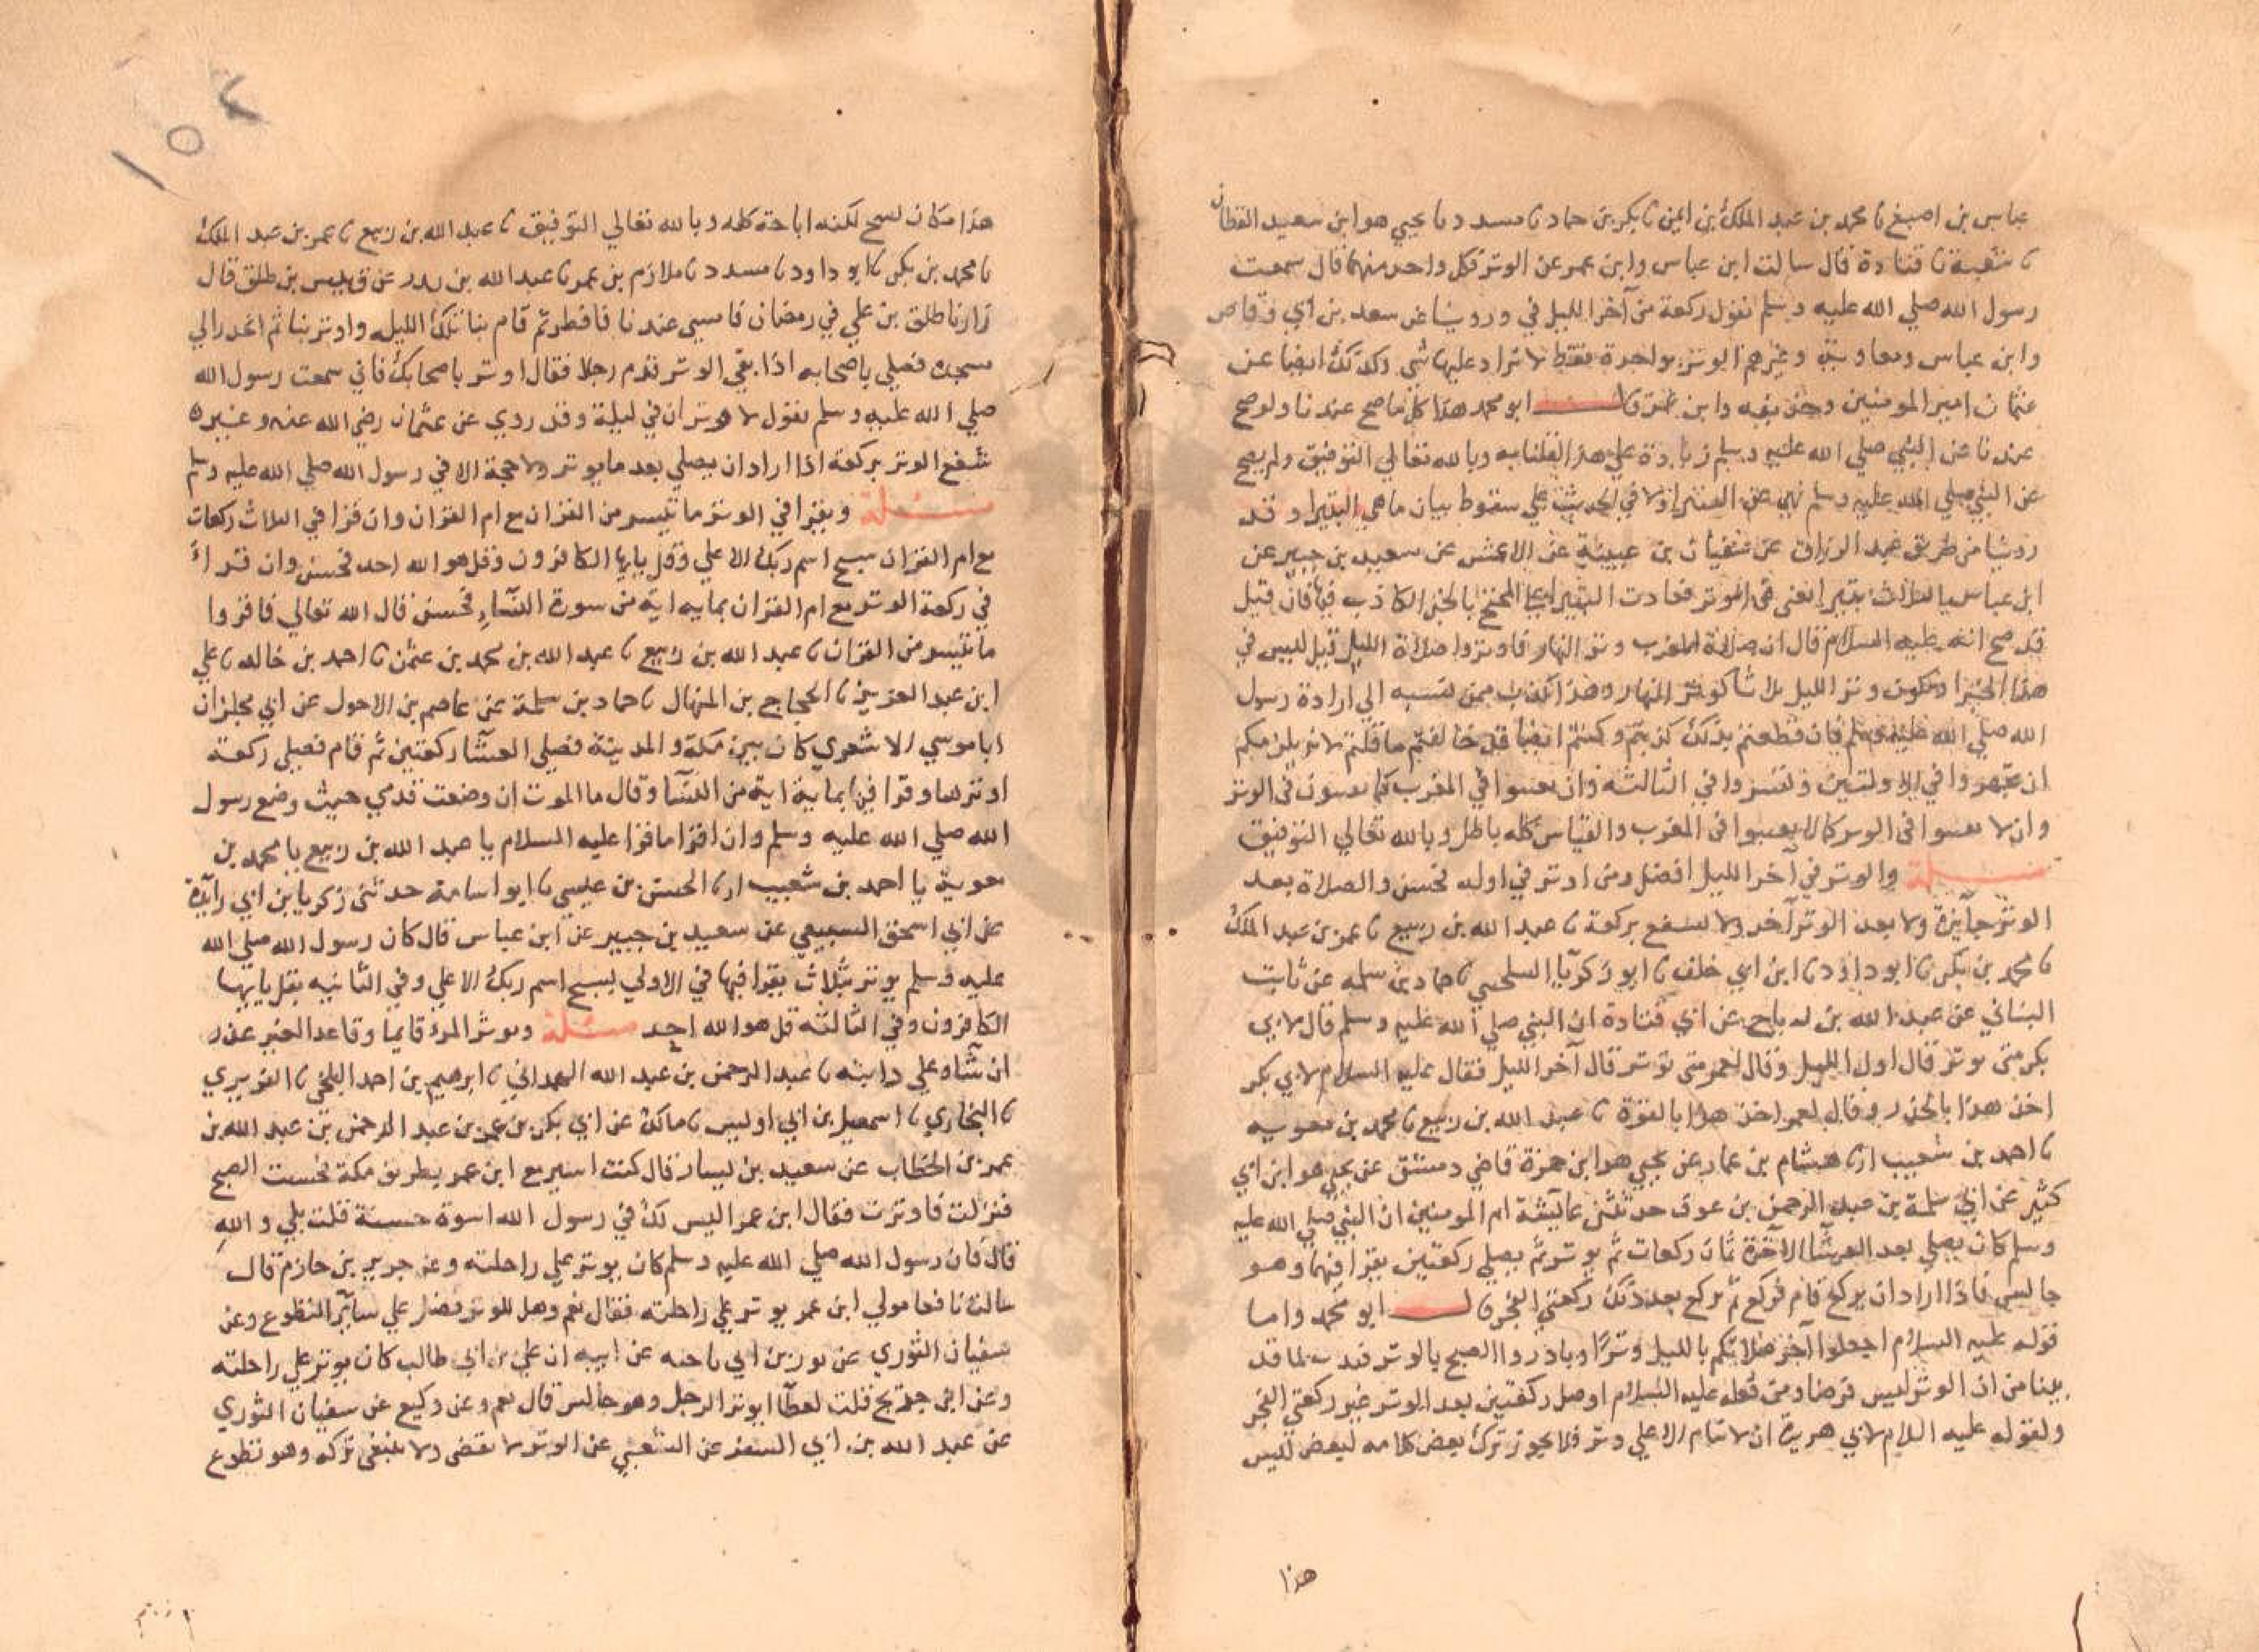 عباس بن اصبغ نا محمد بن عبد الملك بن ايمن نا بكر بن حماد نا مسدد نا يحيي هو ابن سعيد القطان
نا شعبة نا قتادة قال سالت ابن عباس وابن عمر عن الوتر فكل واحد منهما قال سمعت
رسول الله صلي الله عليه وسلم يقول ركعة من آخر الليل في وروينا عن سعد بن ابي وقاص
وابن عباس ومعاوية وغيرهم الوتر بواحدة فقط لا تزاد عليها شي وكذلك ايضا عن
عثمان امير المومنين وحذيفه وابن عمر قال ابو محمد هذا كل ما صح عندنا ولو صح
عندنا عن النبي صلي الله عليه وسلم زيادة علي هذا لقلنا به وبالله تعالي التوفيق ولم يصح
عن النبي صلي الله عليه وسلم نهي عن البتيرا ولا في الحديث علي سقوط بيان ما هي البتيرا وقد
روينا من طريق عبد الرزاق عن سفيان بن عيينة عن الاعمش عن سعيد بن جبير عن
ابن عباس يا لثلاث بتيرا يعني في الوتر فعادت البتيرا علي المحتج بالخبر الكاذب فيها فان قيل
قد صح انه عليه السلام قال ان صلاة المغرب وتر النهار فاوتروا صلاة الليل قيل ليس في
هذا الخبر ان يكون وتر الليل ثلاثا كوتر النهار وهذا كذب ممن نسبه الي ارادة رسول
الله صلي الله عليه وسلم فان قطعتم بذلك كذبتم وكنتم ايضا قد خالفتم ما قلتم لانه يلزمكم
ان تجهروا في الاولتين وتسروا في الثالثه وان تقنتوا في المغرب كما تقنتون في الوتر
وان لا تقنتوا في الوتر كما لا تقنتوا في المغرب والقياس كله باطل وبالله تعالي التوفيق
مسئلة والوتر في آخر الليل افضل ومن اوتر في اوله فحسن والصلاة بعد
الوتر جائزة ولا يعيد الوتر آخر ولا يشفع بركعة نا عبد الله بن ربيع نا عمر بن عبد الملك
نا محمد بن بكر نا ابو داود نا ابن ابي خلف نا ابو زكريا السلحيني نا حماد بن سلمه عن ثابت
البناني عن عبد الله بن رباح عن ابي قتادة ان النبي صلي الله عليه وسلم قال لابي
بكر متي توتر قال اول الليل وقال لعمر متي توتر قال آخر الليل فقال عليه السلام لابي بكر
اخذ هذا بالحذر وقال لعمر اخذ هذا بالقوة نا عبد الله بن ربيع نا محمد بن معويه
نا احمد بن شعيب ارنا هشام بن عمار عن يحيي هو ابن حمزة قاضي دمشق عن يحيي هو ابن ابي
كثير عن ابي سلمة بن عبد الرحمن بن عوف حدثتني عائيشة ام المومنين ان النبي صلي الله عليه
وسلم كان يصلي بعد العشآ الآخرة ثمان ركعات ثم يوتر ثم يصلي ركعتين يقرا فيهما وهو
جالس فاذا اراد ان يركع قام فركع ثم يركع بعد ذلك ركعتي الفجر قال ابو محمد واما
قوله عليه السلام اجعلوا آخر صلاتكم بالليل وترًا وبادروا الصبح بالوتر فندب لما قد
بينا من ان الوتر ليس فرضا ومن فعله عليه السلام اوصل ركعتين بعد الوتر غير ركعتي الفجر
ولقوله عليه السلام لابي هريرة ان لا تنام الا علي وتر فلا يجوز ترك بعض كلامه لبعض ليس
هذا
١٥٢
هذا مكان نسخ لكنه اباحة كله وبالله تعالي التوفيق نا عبد الله بن ربيع نا عمر بن عبد الملك
نا محمد بن بكر نا ابو داود نا مسدد نا ملازم بن عمر نا عبد الله بن بدر عن قيس بن طلق قال
زارنا طلق بن علي في رمضان فامسي عندنا فافطر ثم قام بنا تلك الليله واوتر بنا ثم انحدر الي
مسجده فصلي باصحابه اذا بقي الوتر قدم رجلا فقال اوتر باصحابك فاني سمعت رسول الله
صلي الله عليه وسلم يقول لا وتران في ليلة وقد روي عن عثمان رضي الله عنه وغيره
شفع الوتر بركعة اذا اراد ان يصلي بعد ما يوتر ولا حجة الا في رسول الله صلي الله عليه وسلم
مسئلة ويقرا في الوتر ما تيسر من القران مع ام القران وان قرا في الثلاث ركعات
مع ام القران سبح اسم ربك الاعلي وقل يايها الكافرون وقل هو الله احد فحسن وان قرأ
في ركعة الوتر مع ام القران بمايه ايه من سورة النسآء فحسن قال الله تعالي فاقروا
ما تيسر من القران نا عبد الله بن ربيع نا عبد الله بن محمد بن عثمن نا احمد بن خالد نا علي
ابن عبد العزيز نا الحجاج بن المنهال نا حماد بن سلمة عن عاصم بن الاحول عن ابي مجلز ان
ابا موسي الاشعري كان بين مكة والمدينة فصلي العشآ ركعتين ثم قام فصلي ركعة
اوتر بها وقرا فيها بماية اية من النسآ وقال ما الوت ان وضعت قدمي حيث وضع رسول
الله صلي الله عليه وسلم وان اقرا ما قرا عليه السلام نا عبد الله بن ربيع نا محمد بن
معوية نا احمد بن شعيب ارنا الحسن بن عيسي نا ابو اسامة حدثني زكريا بن ابي زآيدة
عن ابي اسحق السبيعي عن سعيد بن جبير عن ابن عباس قال كان رسول الله صلي الله
عليه وسلم يوتر بثلاث يقرا فيها في الاولي بسبح اسم ربك الاعلي وفي الثانيه بقل يايها
الكافرون وفي الثالثه قل هو الله احد مسئلة ويوتر المرء قايما وقاعدا لغير عذر
ان شآء علي دابته نا عبد الرحمن بن عبد الله الهمداني نا ابرهيم بن احمد البلخي نا الفربري
نا البخاري نا اسمعيل بن ابي اوليس نا مالك عن ابي بكر بن عمر بن عبد الرحمن بن عبد الله بن
عمر بن الخطاب عن سعيد بن يسار قال كنت اسير مع ابن عمر بطريق مكة فخشيت الصبح
فنزلت فاوترت فقال ابن عمر اليس لك في رسول الله اسوة حسنة قلت بلي والله
قال فان رسول الله صلي الله عليه وسلم كان يوتر علي راحلته وعن جرير بن حازم قال
سالت نافعا مولي ابن عمر يوتر علي راحلته فقال نعم وهل للوتر فضل علي سآير التطوع وعن
سفيان الثوري عن ثور بن ابي فاخته عن ابيه ان علي بن ابي طالب كان يوتر علي راحلته
وعن ابن جريج قلت لعطآ ايوتر الرجل وهو جالس قال نعم وعن وكيع عن سفيان الثوري
عن عبد الله بن ابي السفر عن الشعبي عن الوتر لا يقضي ولا ينبغي تركه وهو تطوع